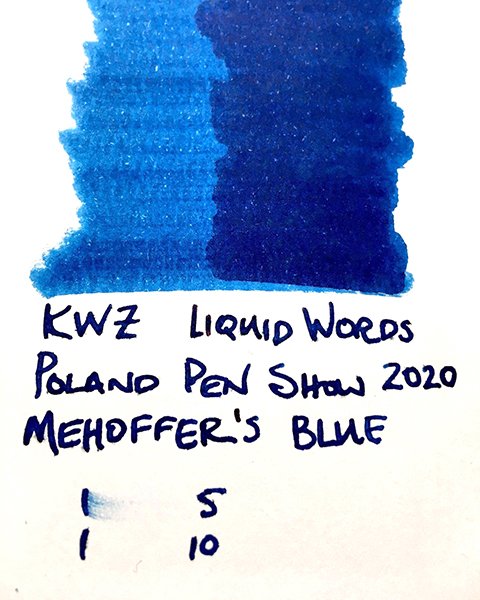 KWZ LIQUID WORDS
POLAND PEN SHOW 2020
MEHOFFER'S BLUE
1 5
1 10